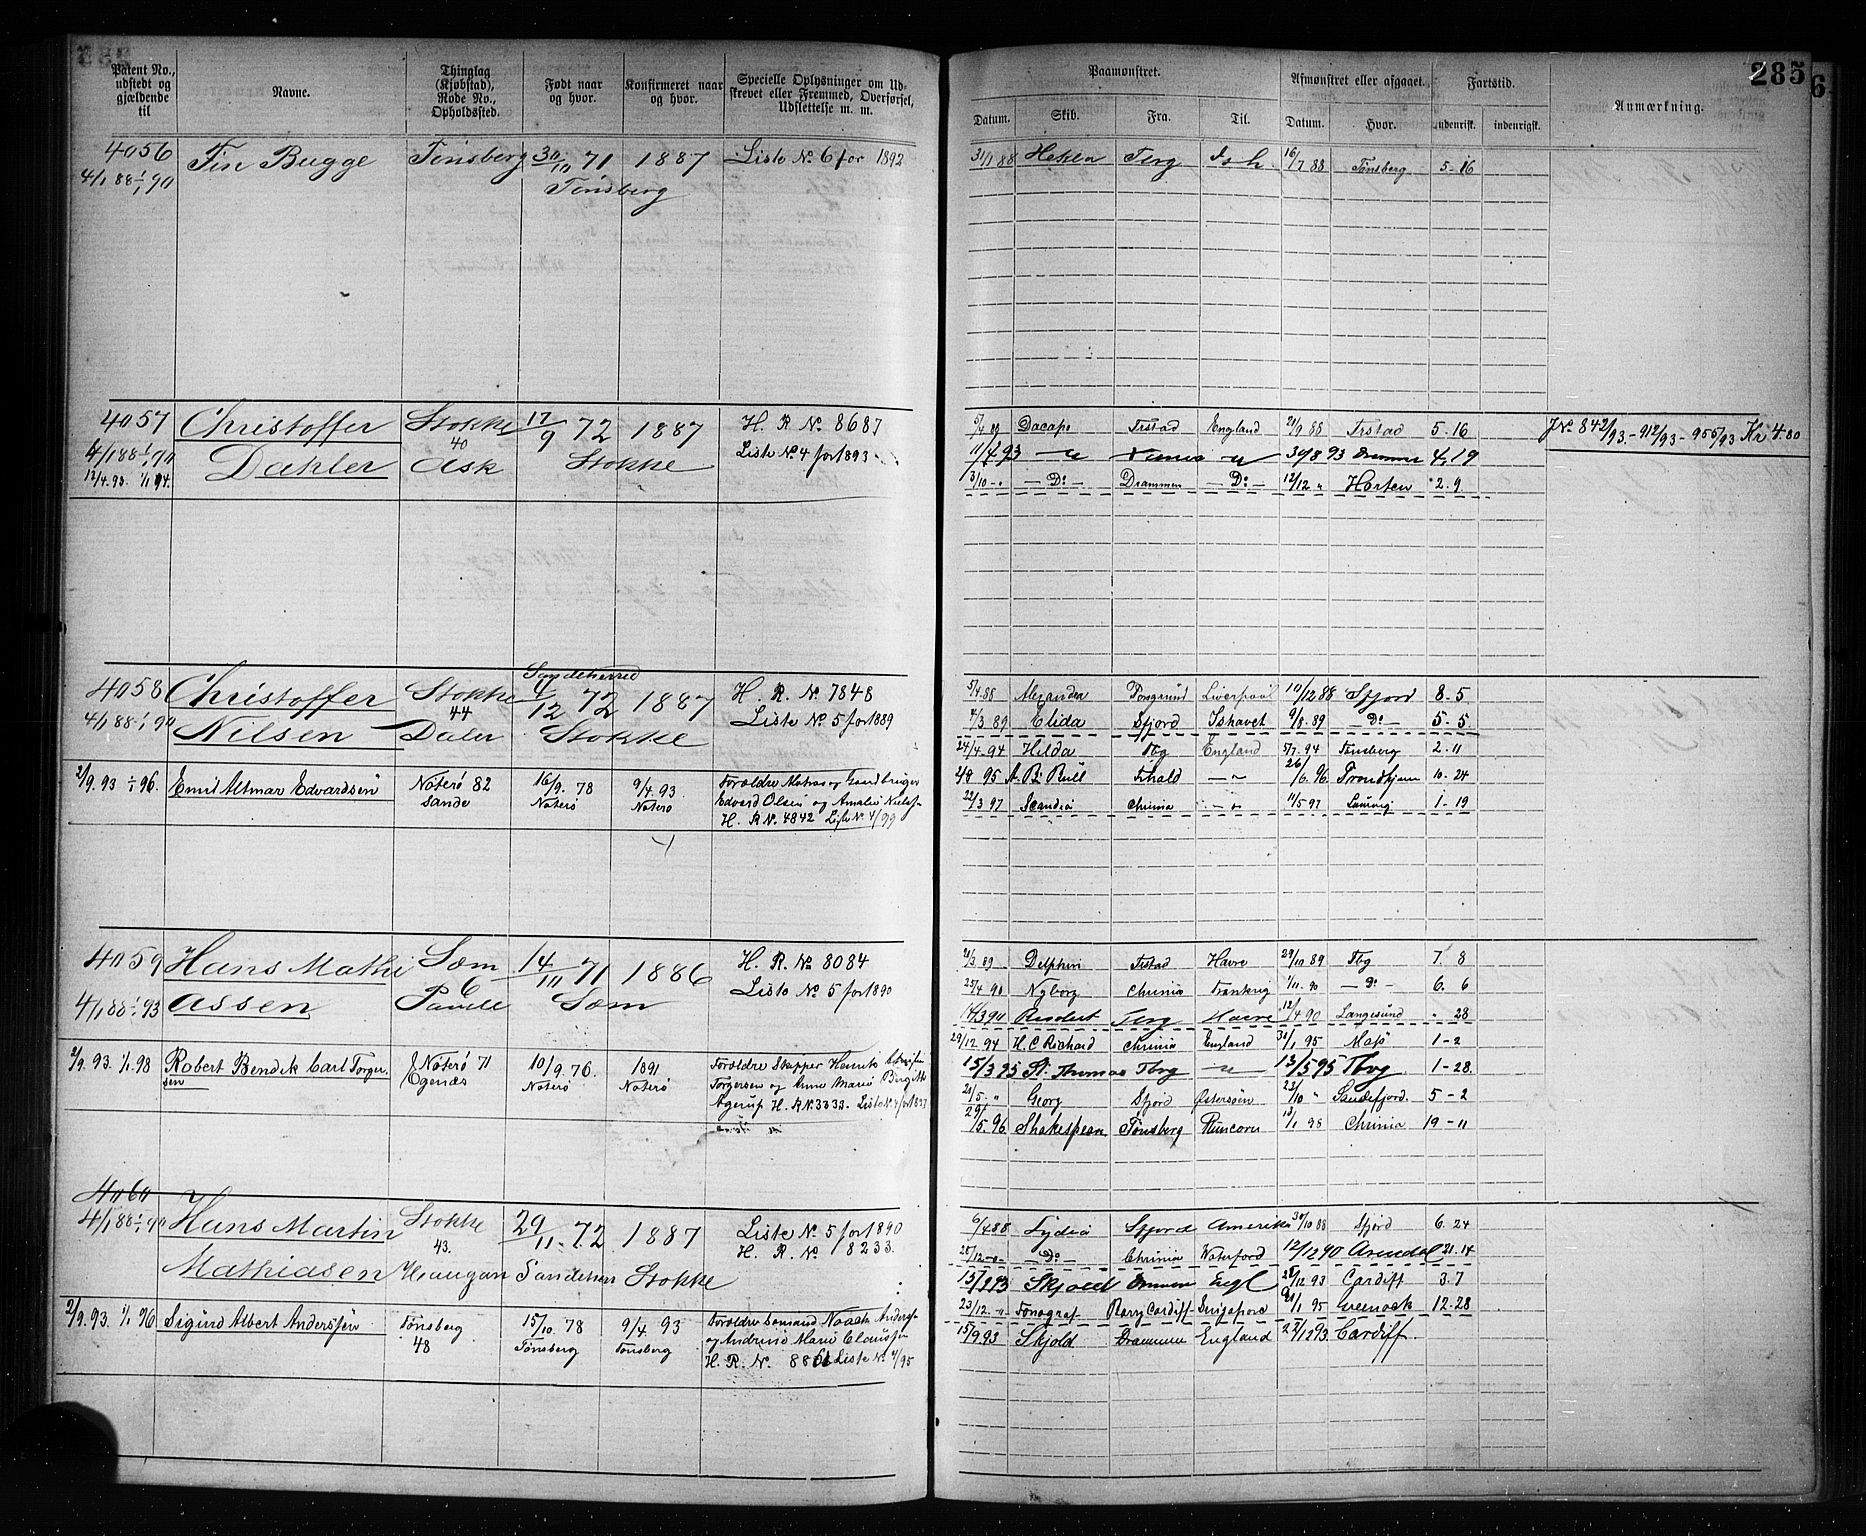 285
6
Patent No., udstedt og gjældende til
Navne.
Thinglag (Kjøbstad), Rode No., Opholdssted.
Født naar og hvor.
Konfirmeret naar og hvor.
Specielle Oplysninger om Udskrevet eller Fremmed, Overførsel, Udslettelse m. m.
Paamønstret.
Afmønstret eller afgaaet.
Fartstid.
Anmærkning.
Datum. Skib. Fra. Til. Datum. Hvor. udenrisk. indenrigsk.
4056 Fin Bugge Tønsberg 30/10 71 1887 Liste No 6 for 1892
4/1 88 1/1 90 Tønsberg
31/1 88 Hekla Tbrg Ish 16/7 88 Tønsberg 5-16
4057 Christoffer Stokke 17/9 72 1887 H. R No 8687
4/1 88 1/1 90 Dahler 40 Ask Stokke Liste No. 4 for 1893
12/4.93. 1/1 94.
5/4 89 Dacapo Frstad England 21/9 88 Frstad 5-16
11/4 93 - " - " 30/8 93 Drammen 4, 19
3/10 - " - Do - Drammen - Do - 12/12 " Horten 2. 9.
J No 842/93 - 912/93 - 955/93 Kr 4.80
4058 Christoffer Stokke Sandeherred 4/12 72 1887 H. R. No 7848
4/1 88 1/1 90 Nilsen 44 Daler Stokke Liste No. 5 for 1889
5/4 88 Alexandra Porsgrund Liverpool 10/12 88 Sfjord 8-5
4/3 89 Elida Sfjord Ishavet 9/8 89 - Do - 5-5
24/4. 94 Hilda Tbg England 5/7. 94 Tønsberg 2-11
2/8 95 A. B. Bull Frhald - " 26/6. 96 Trondhjem 10-24
22/3 97 Scandia Chrinia - " 11/5 97 Laurvig 1-19
2/9. 93 1/1 96. Emil Almar Edvardsen Nøterø 82 Sande 16/9. 78 Nøterø 9/4. 93 Nøterø Forældre Matros og Gaardbruger
Edvard Olsen og Amalie
H. R No. 4842 Liste No. 4/99
4059 Hans Mathi Sæm 14/11 71 1886 H. R. No 8084
4/1 88 1/1 93 assen 6 Sæm Liste No. 5 for 1890
21/3 89 Delphin Frstad Havre 29/10 89 Tbg 7. 8
25/4 90 Nyborg Chrinia Frankrig 1/11. 90 - Do - 6. 6
14/3 90 Tbrg Havre 12/4 90 Langesund " 28
29/12 94 H. C Richard Chrinia England 31/1 95 Moss 1-2
15/3 95 St. Thomas Tbrg - " - 13/5 95 Tbrg 1-28.
21/5 - " Georg Sfjord Østersøen 23/10 " Sandefjord. 5-2
29/5. 96 Shakespeare Tønsberg Runcorn 13/1 98 Chrinia 19-11
2/9. 93 1/1. 98 Robert Bendik Carl Torger Nøterø 71 10/9. 76. 1891 Forældre Skipper Henrik Christian
sen Nøterø Nøterø Torgersen og Anne Marie Birgitte
Agerup H. R No 3333. Liste No.
4060 Hans Martin Stokke 29/11. 72 1887 Liste No. 5 for 1890
4/1 88 1/1 90 43. H. R. No 8233.
Mathiasen Haugan Sandeherr Stokke
6/4 88 Lydia Sfjord Amerika 30/10 88 Sfjord 6. 24
25/12 - " - Do - Chrinia Waterford 12/12 90 Arendal 21. 14
15/9 93 Skjold Drammen Engl 22/12 93 Cardiff 3. 7
23/12. - " Fonograf Barry Cardiff Singapore 21/1 95 Greenock 12-28
15/9 93 Skjold Drammen England 22/12 93. Cardiff.
2/9. 93. 1/1 96 Sigurd Albert Andersen Tønsberg 48 15/10. 78 Tønsberg 9/4 93 Tønsberg Forældre Lomand Noach Anders-
og Andrine Marie Claussen
H. R. No. Liste No 4/95